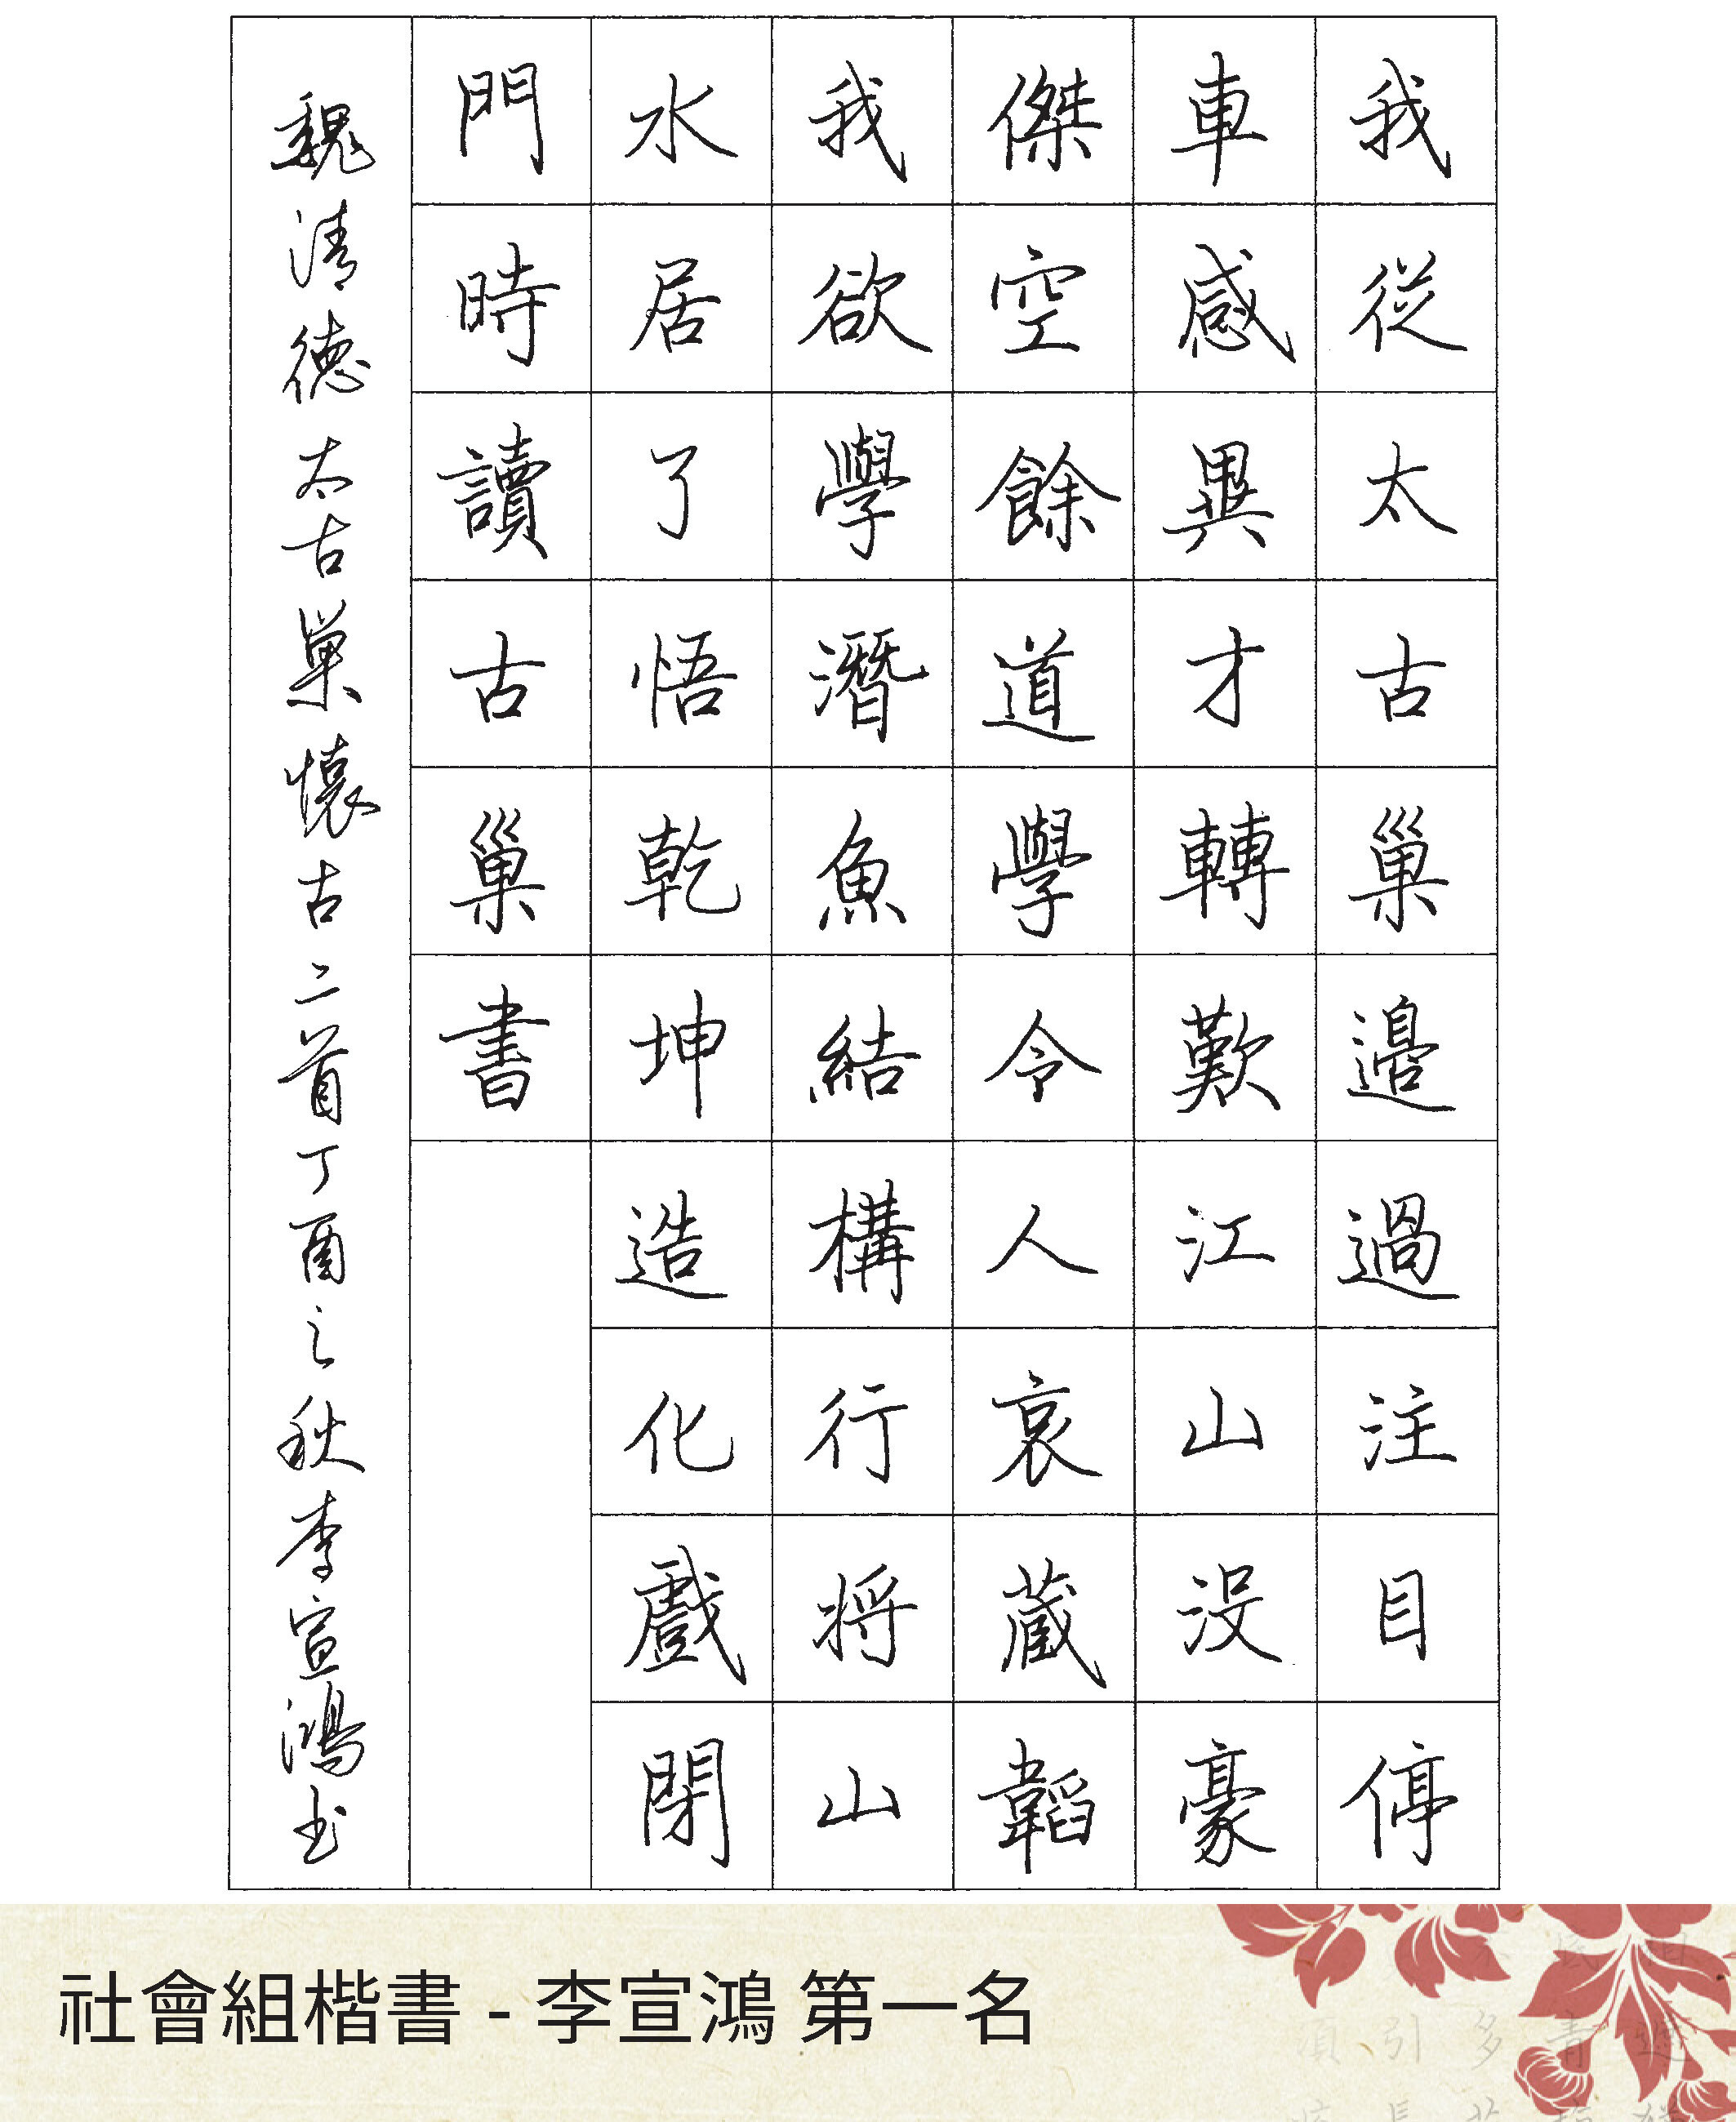 我從太古巢邉過注目停
車感異才轉歎江山沒豪
傑空餘道學令人哀藏韜
我欲學潛魚結構行将山
水居了悟乾坤造化戲閉
門時讀古巢書
魏清德太古巢懷古二首丁酉之秋李宣鴻书
社會組楷書 - 李宣鴻 第一名